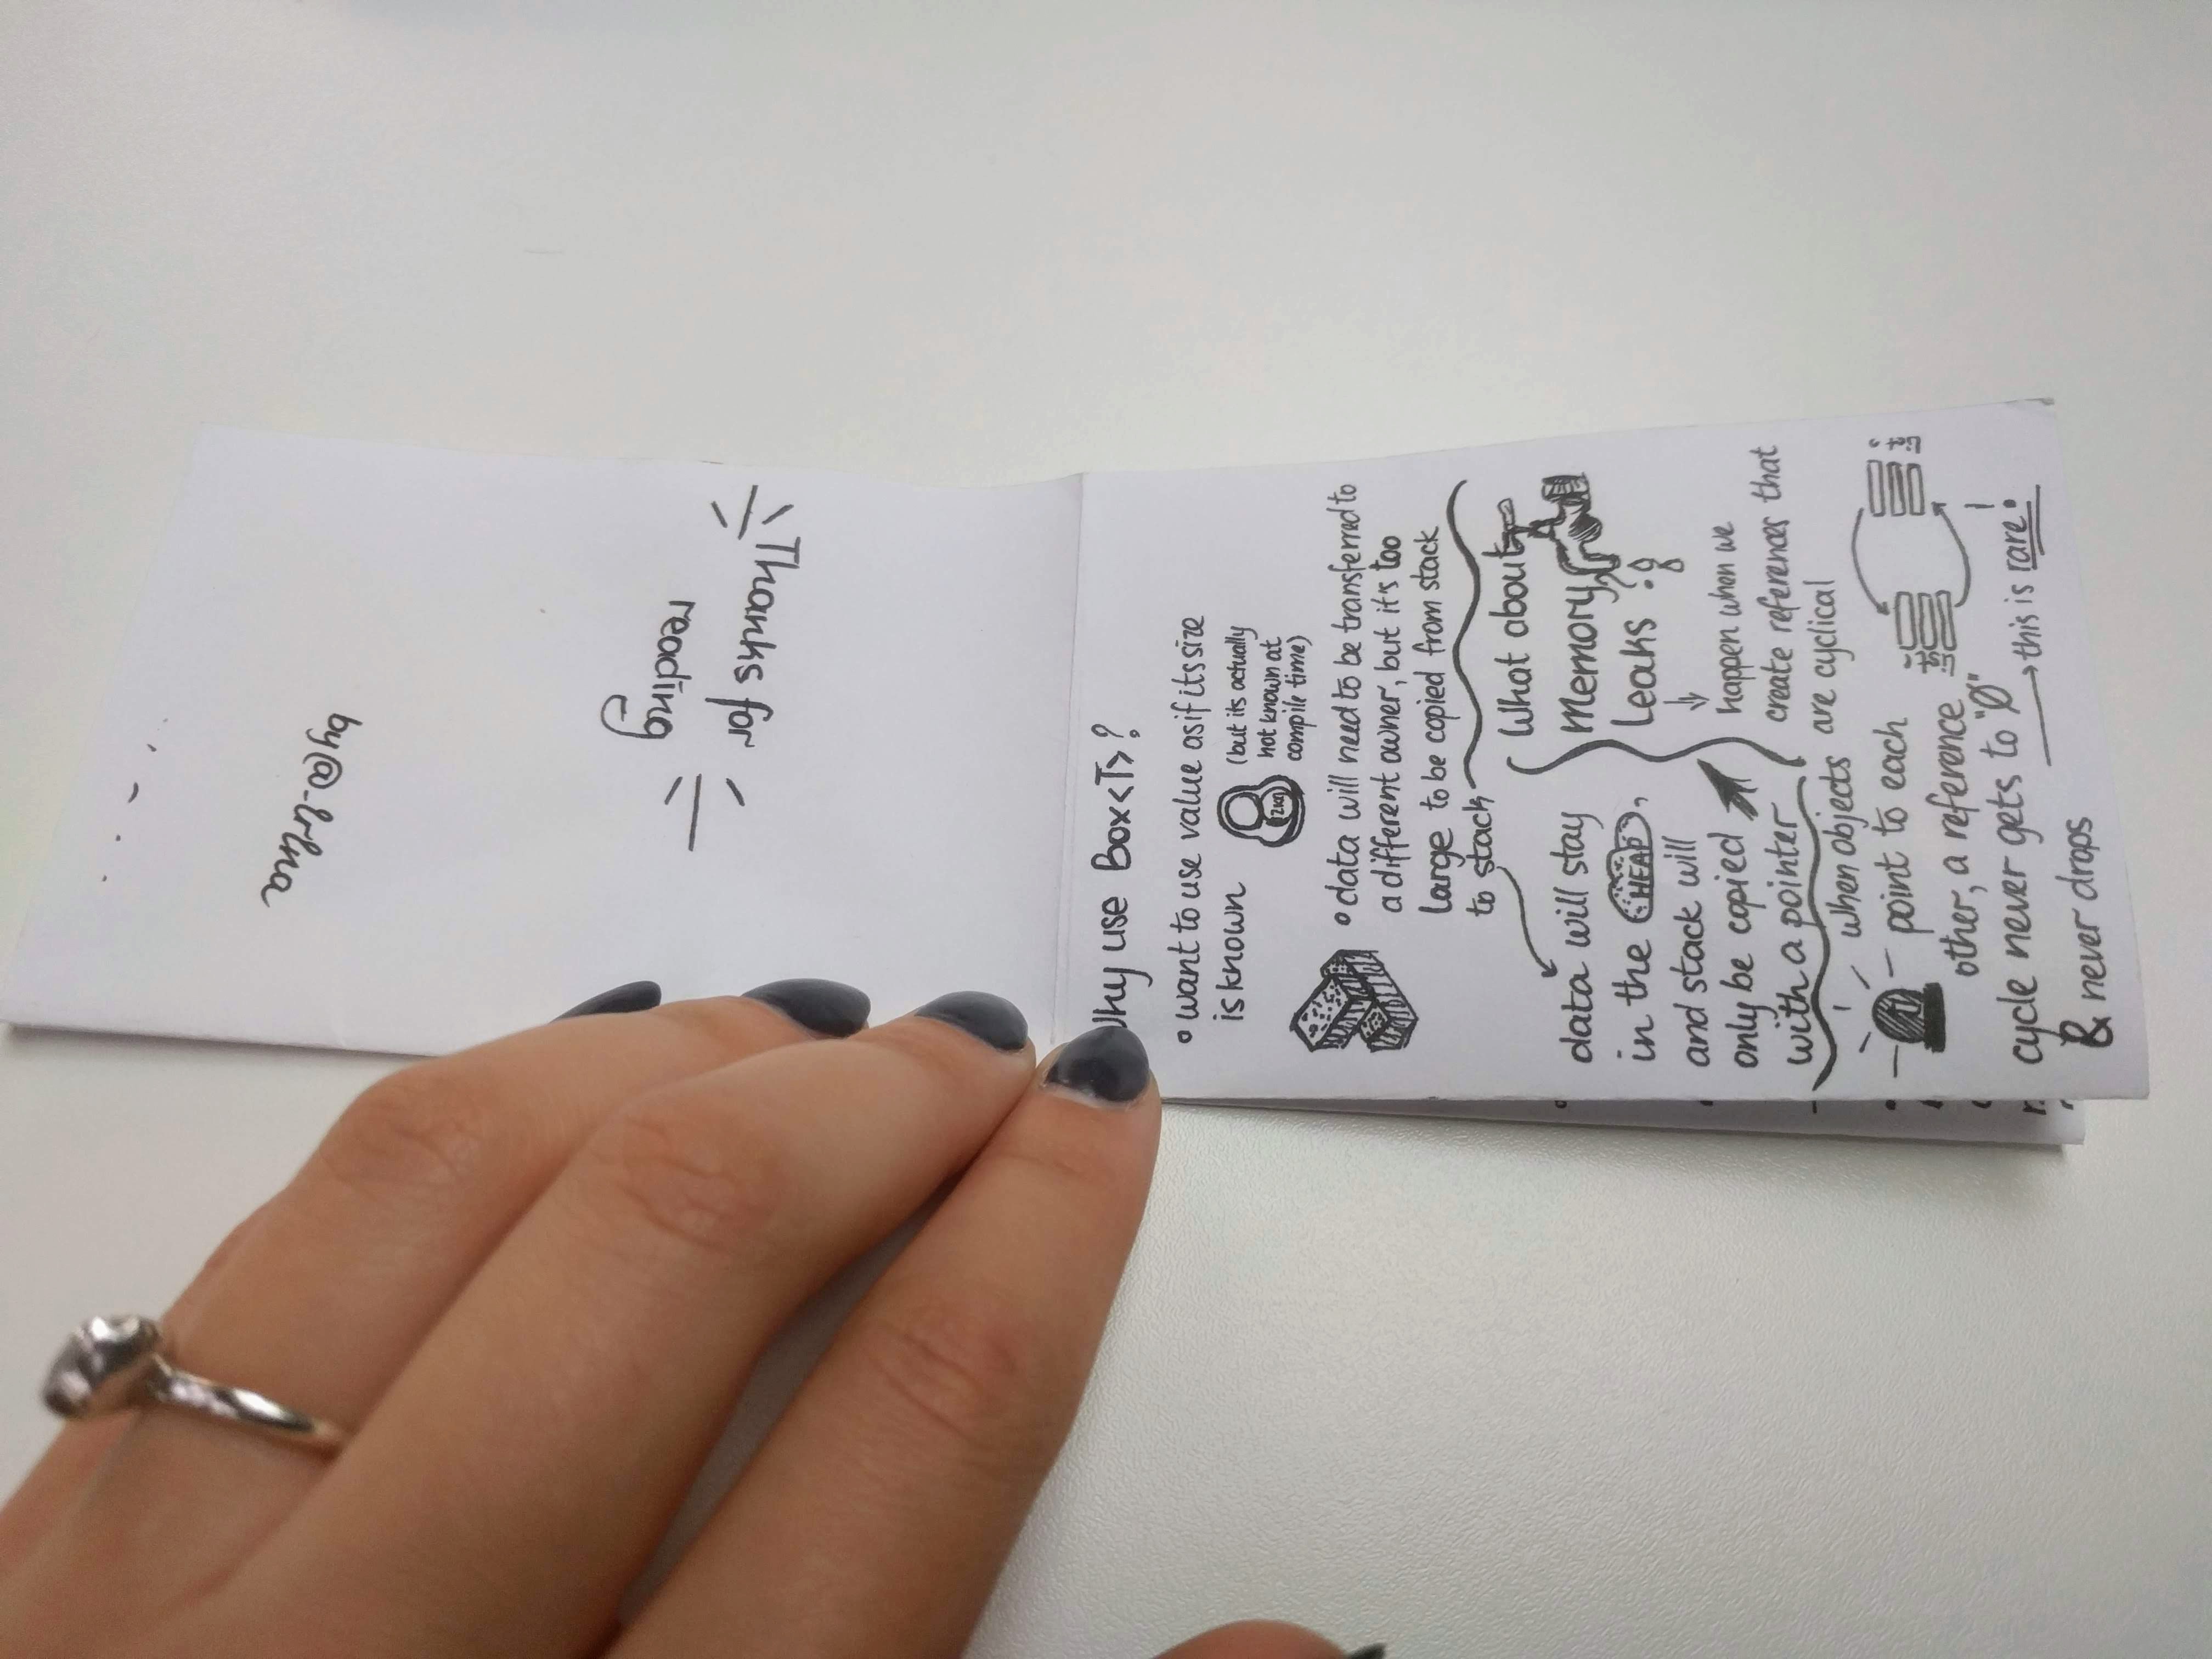 Why use Box<T>?
• want to use value as if its size
is known
(but its actually
not known at
compile time)
2KG
• data will need to be transferred to
a different owner, but it's too
large to be copied from stack
to stack
data will stay
in the HEAP,
and stack will
only be copied
with a pointer
What about
memory
leaks ??
happen when we
create references that
are cyclical
when objects
point to each
other, a reference
cycle never gets to "0"
& never drops
→ this is rare!
Thanks for
reading